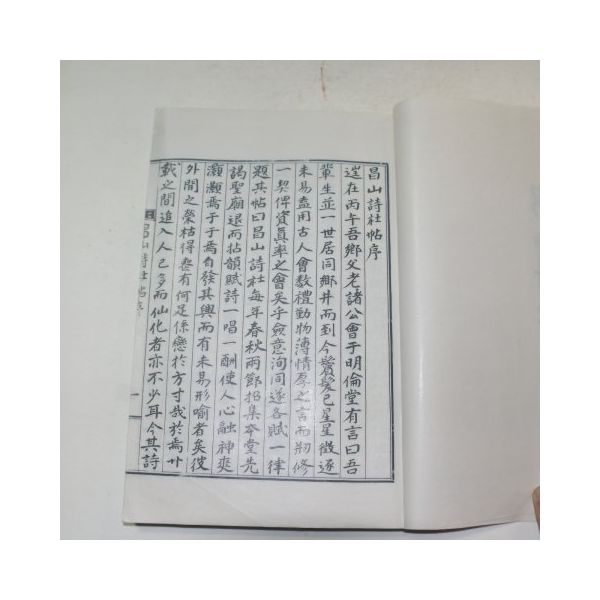 昌山詩社帖序
逹在丙午吾鄉父老諸公會于明倫堂有言曰吾
輩生並一世居同鄉井而到今鬢髮已星星徵逐
未易盍用古人會數禮勤物薄情厚之言而刱修
一契俾資眞率之會矣乎僉意洵同遂各賦一律
題其帖曰昌山詩社每年春秋兩節招集本堂先
謁聖廟退而拈韻賦詩一唱一酬使人心融神爽
灝灝焉于于焉自發其興而有未易形喻者矣彼
外間之榮枯得喪有何足係戀於方寸哉於焉卄
載之間追入人已多而仙化者亦不少耳今其詩
昌山詩社帖序
一